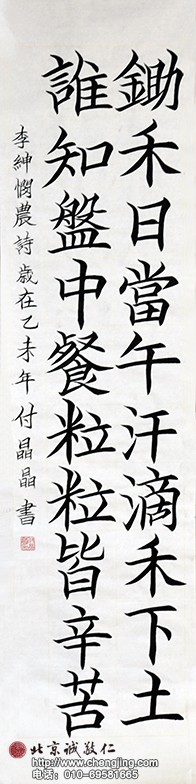 鋤禾日當午汗滴禾下土
誰知盤中餐粒粒皆辛苦
李紳憫農詩歲在乙未年付晶晶書
北京诚敬仁
http://www.chengjing.com
电话：010-89581865